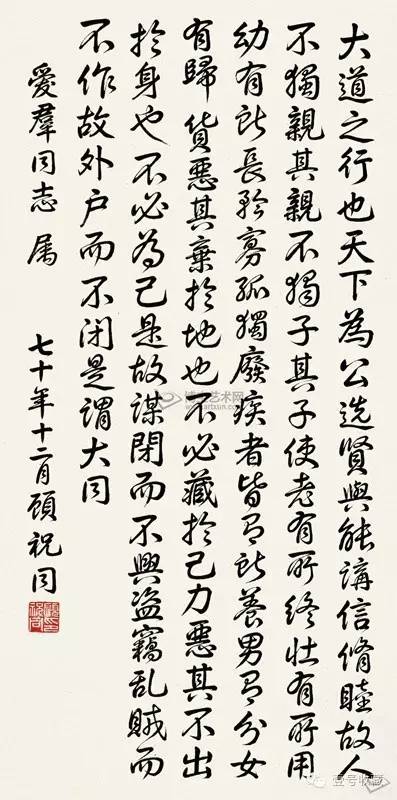 大道之行也天下為公选賢與能講信脩睦故人
不獨親其親不獨子其子使老有所終壮有所用
幼有所長矜寡孤獨廢疾者皆有所養男有分女
有歸貨惡其棄於地也不必藏於己力惡其不出
於身也不必為己是故謀閉而不興盜竊乱賊而
不作故外户而不闭是謂大同
愛羣同志属 七十年十二月顾祝同
壹号收藏